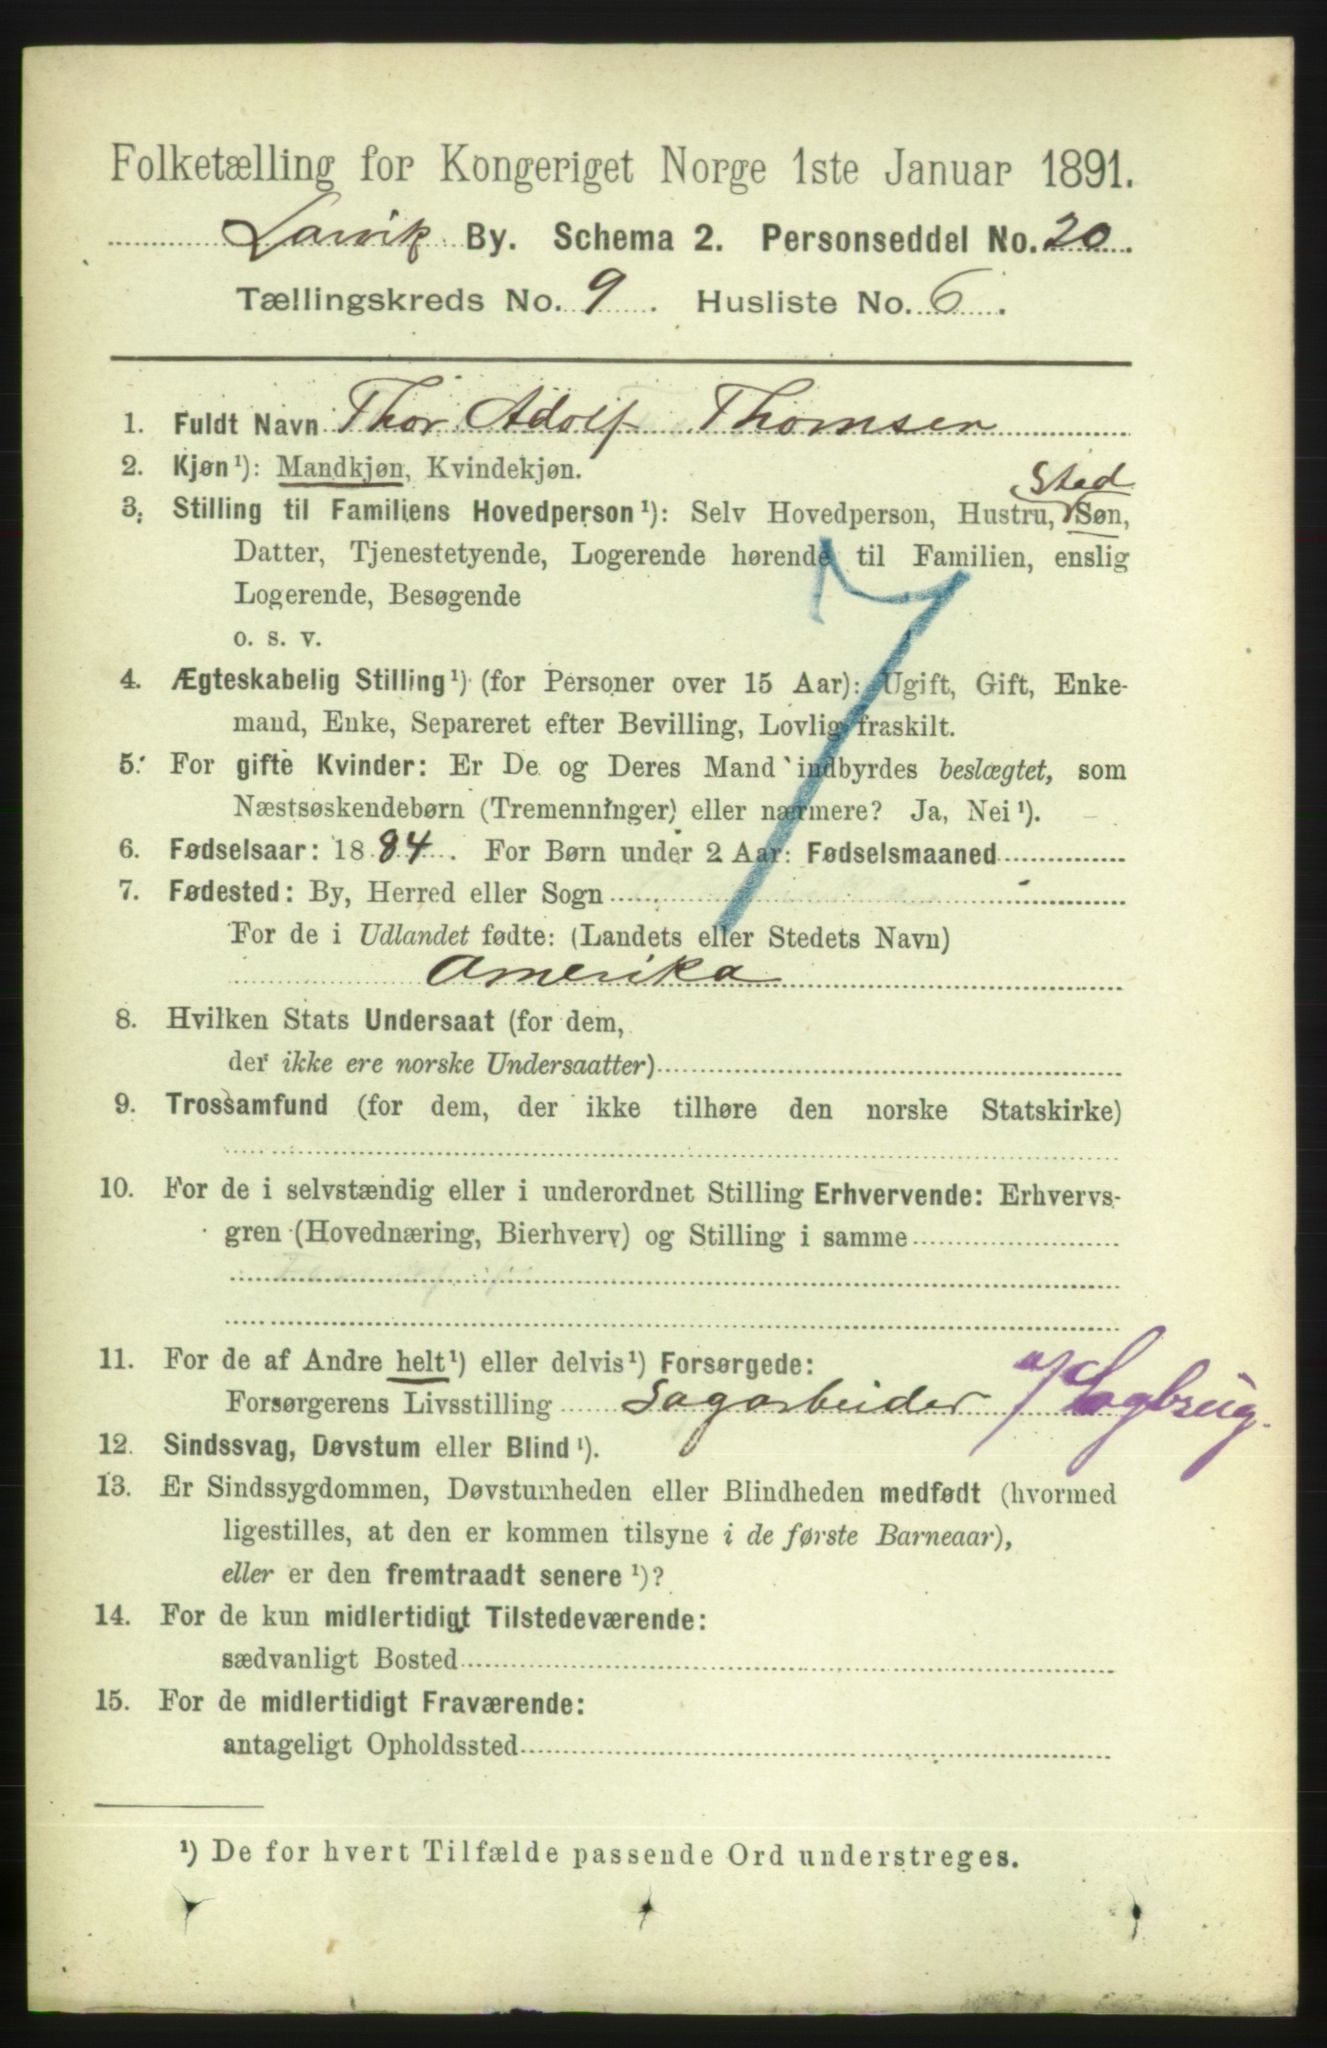 Folketælling for Kongeriget Norge 1ste Januar 1891.
Larvik By. Schema 2. Personseddel No. 20.
Tællingskreds No. 9. Husliste No. 6.
1. Fuldt Navn Thor Adolf Thomsen
2. Kjøn¹): Mandkjøn, Kvindekjøn.
Sted
3. Stilling til Familiens Hovedperson¹): Selv Hovedperson, Hustru, Søn,
Datter, Tjenestetyende, Logerende hørende til Familien, enslig
Logerende, Besøgende
o. s. v.
7
4. Ægteskabelig Stilling¹) (for Personer over 15 Aar): Ugift, Gift, Enke-
mand, Enke, Separeret efter Bevilling, Lovlig fraskilt.
5. For gifte Kvinder: Er De og Deres Mand indbyrdes beslægtet, som
Næstsøskendebørn (Tremenninger) eller nærmere? Ja, Nei¹).
6. Fødselsaar: 1884. For Børn under 2 Aar: Fødselsmaaned
7. Fødested: By, Herred eller Sogn
For de i Udlandet fødte: (Landets eller Stedets Navn)
Amerika
8. Hvilken Stats Undersaat (for dem,
der ikke ere norske Undersaatter)
9. Trossamfund (for dem, der ikke tilhøre den norske Statskirke)
10. For de i selvstændig eller i underordnet Stilling Erhvervende: Erhvervs-
gren (Hovednæring, Bierhverv) og Stilling i samme
11. For de af Andre helt¹) eller delvis¹) Forsørgede:
Forsørgerens Livsstilling Sagarbeider
12. Sindssvag, Døvstum eller Blind¹).
13. Er Sindssygdommen, Døvstumheden eller Blindheden medfødt (hvormed
ligestilles, at den er kommen tilsyne i de første Barneaar),
eller er den fremtraadt senere¹)?
14. For de kun midlertidigt Tilstedeværende:
sædvanligt Bosted
15. For de midlertidigt Fraværende:
antageligt Opholdssted
¹) De for hvert Tilfælde passende Ord understreges.